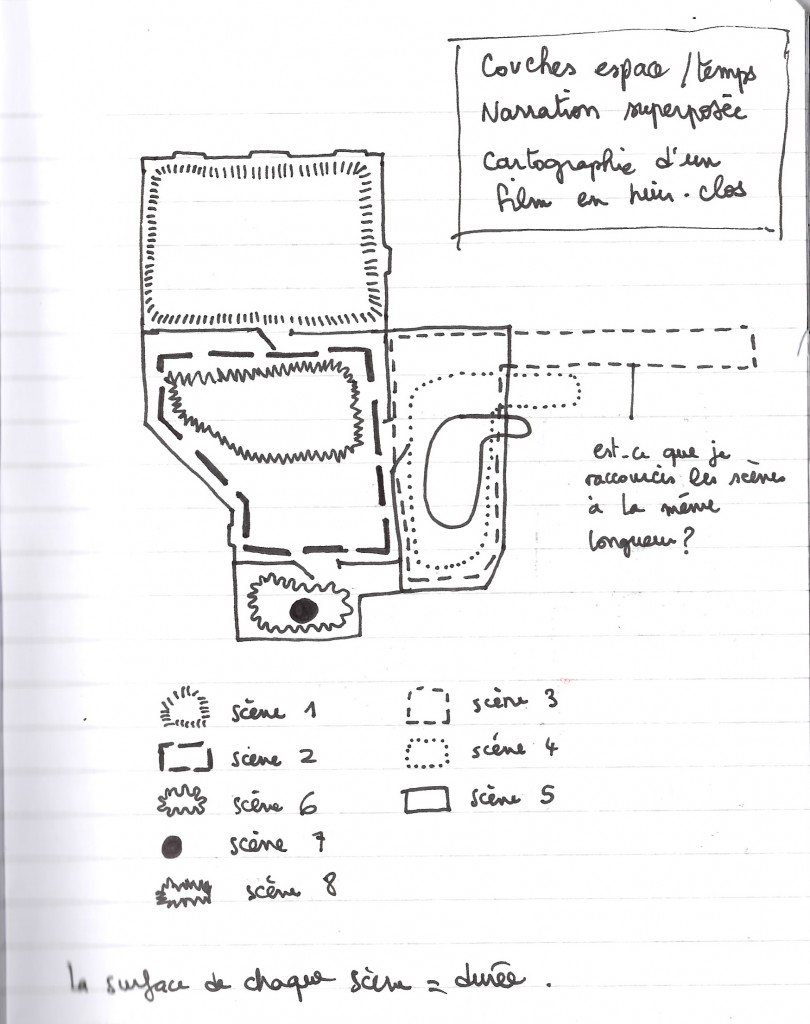 Couches espace / temps
Narration superposée
Cartographie d'un
film en huis-clos
est-ce que je
raccourcis les scènes
à la même
longueur ?
scène 1
scène 2
scène 6
scène 7
scène 8
scène 3
scène 4
scène 5
la surface de chaque scène = durée .